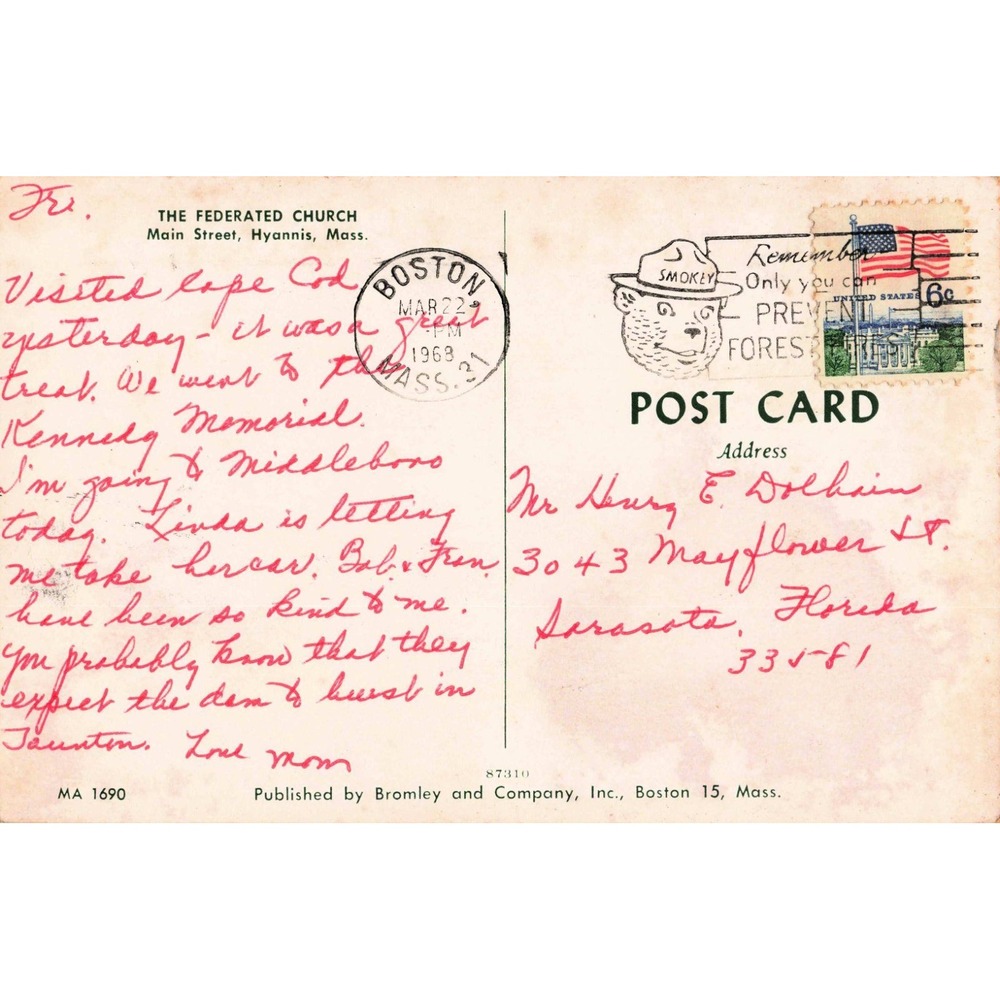 Fri.
THE FEDERATED CHURCH
Main Street, Hyannis, Mass.
Visited Cape Cod
yesterday - it was a great
treat. We went to the
Kennedy Memorial.
I'm going to Middleboro
today. Linda is letting
me take her car. Bob & Fran
have been so kind to me.
You probably know that they
expect the dam to burst in
Taunton. Love Mom
BOSTON,
MAR 22
PM
1968
MASS. 31
SMOKEY
Remember
Only you can
PREVENT
FOREST FIRES
UNITED STATES 6c
POST CARD
Address
Mr Henry E. Dolhain
3043 Mayflower St.
Sarasota, Florida
33581
87310
MA 1690
Published by Bromley and Company, Inc., Boston 15, Mass.